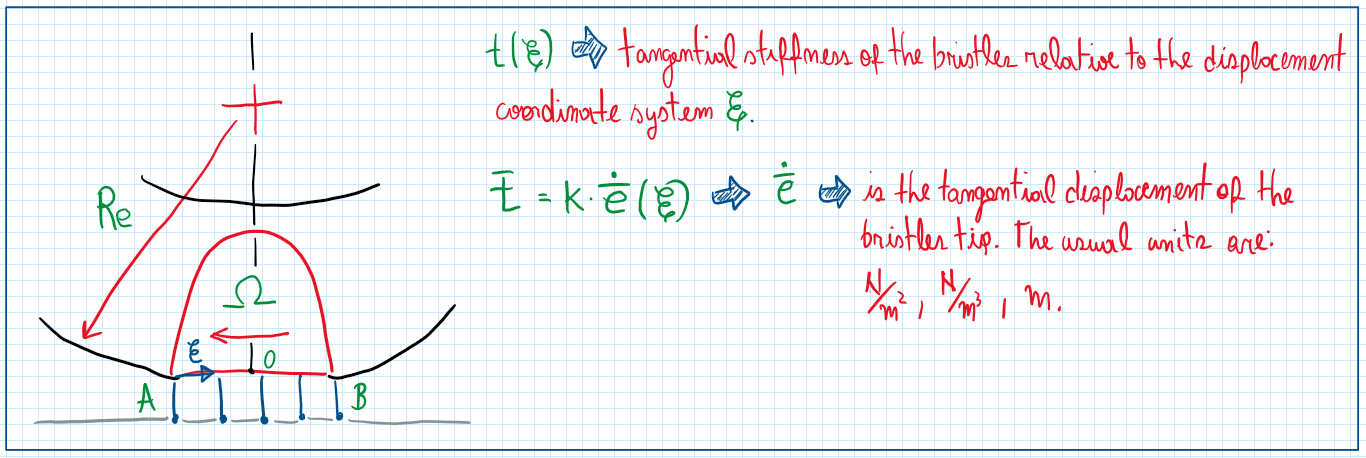 t(ξ) ⇒ tangential stiffness of the bristles relative to the displacement
coordinate system ξ.
t̄ = k · ė̄(ξ) ⇒ ė̄ ⇒ is the tangential displacement of the
bristles tip. The usual units are:
N/m², N/m³, m.
Re
Ω
ξ
O
A
B